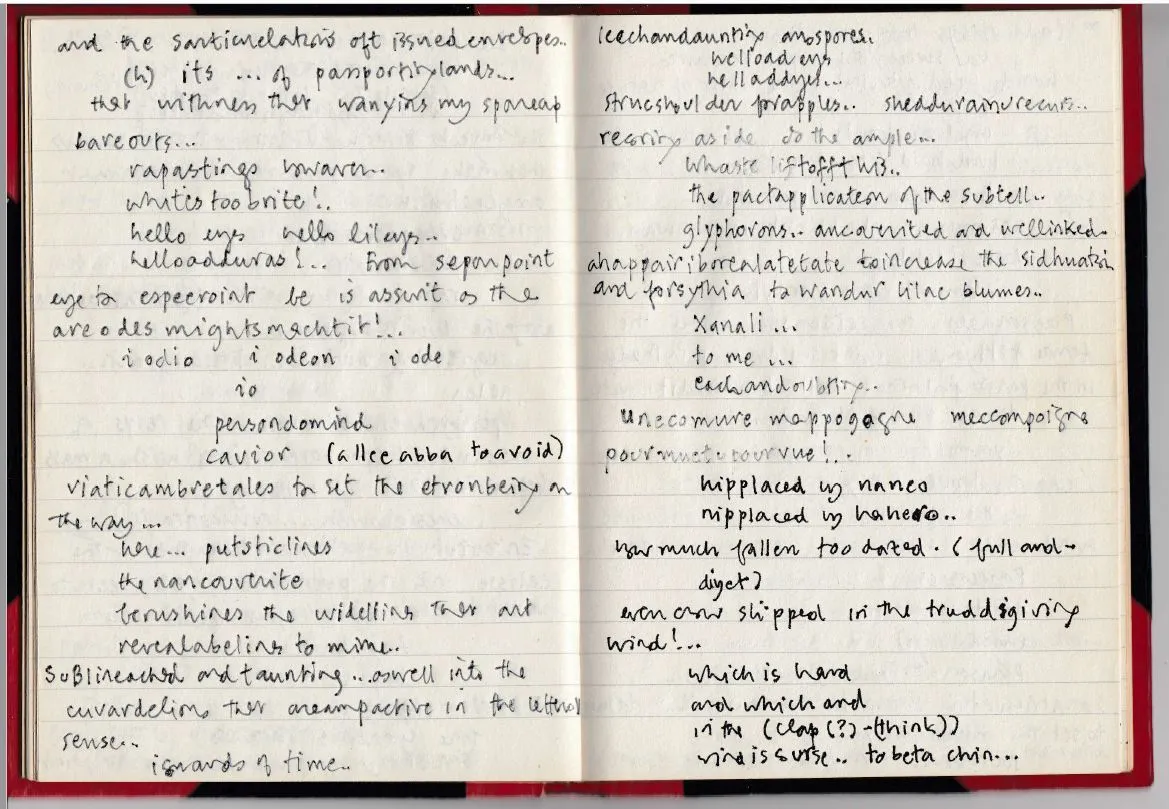 and the santiculations oft issued envelopes..
(h) its ... of passportitylands...
that withness that wanyins my spaneap
bareouts...
rapastings vowaren..
whitestoobrite!..
hello eyes hello lileys..
helloadduras!... From seponpoint
eye to especroint be is assunit as the
areodes mightsmachtit!..
i odio i odeon i ode
io
persondomind
cavior (allee abba to avoid)
viaticambretales to set the etronbeing on
the way...
here... putsticlines
the nancouthite
berushines the widelline that ant
revealabelins to mime..
Sublineached and taunting...aswell into the
cuvardelions that areampactive in the
sense..
iswards of time..
icechandaunting anospores.
helload eyes
helladdyes...
strucshoulder forapples..
aside do the ample...
whaste liftofft his..
the pactapplication of the subtell..
glyphorons.. ancoverited and wellinked.
to increase the
and forsythia to wandur lilac blumes..
Xanali...
to me...
eachandoubting..
unecomure mappogagne meccompoigne
hipplaced in naneo
nipplaced in hahero..
how much fallen too dazed. (full and-
diget)
even crow shipped in the truddsgiving
wind!...
which is hard
and which and
in the (clap(?)-(think))
wind is surse.. to beta chin...